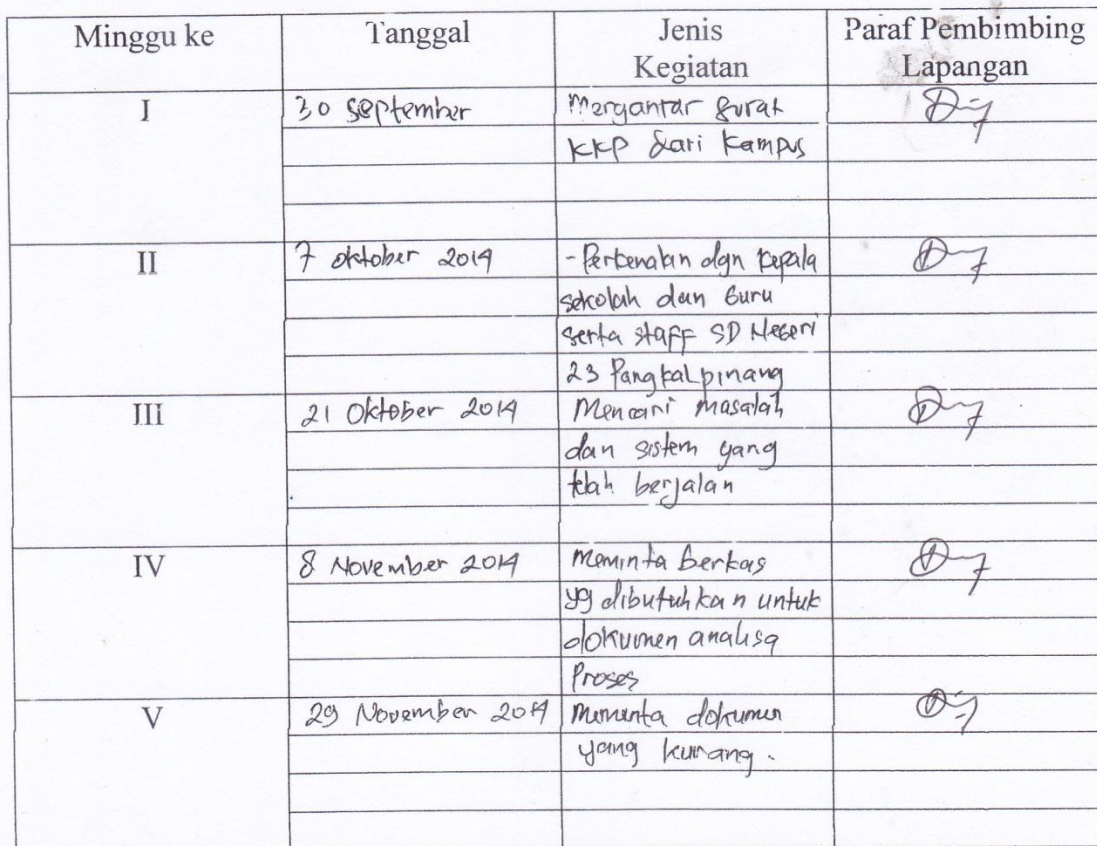 Minggu ke Tanggal Jenis Kegiatan Paraf Pembimbing Lapangan
I 30 September Mengantar surat
KKP dari Kampus
II 7 Oktober 2014 - Perkenalan dgn kepala
sekolah dan Guru
serta staff SD Negeri
23 Pangkalpinang
III 21 Oktober 2014 Mencari masalah
dan sistem yang
telah berjalan
IV 8 November 2014 Meminta berkas
yg dibutuhkan untuk
dokumen analisa
Proses
V 29 November 2014 Meminta dokumen
yang kurang.